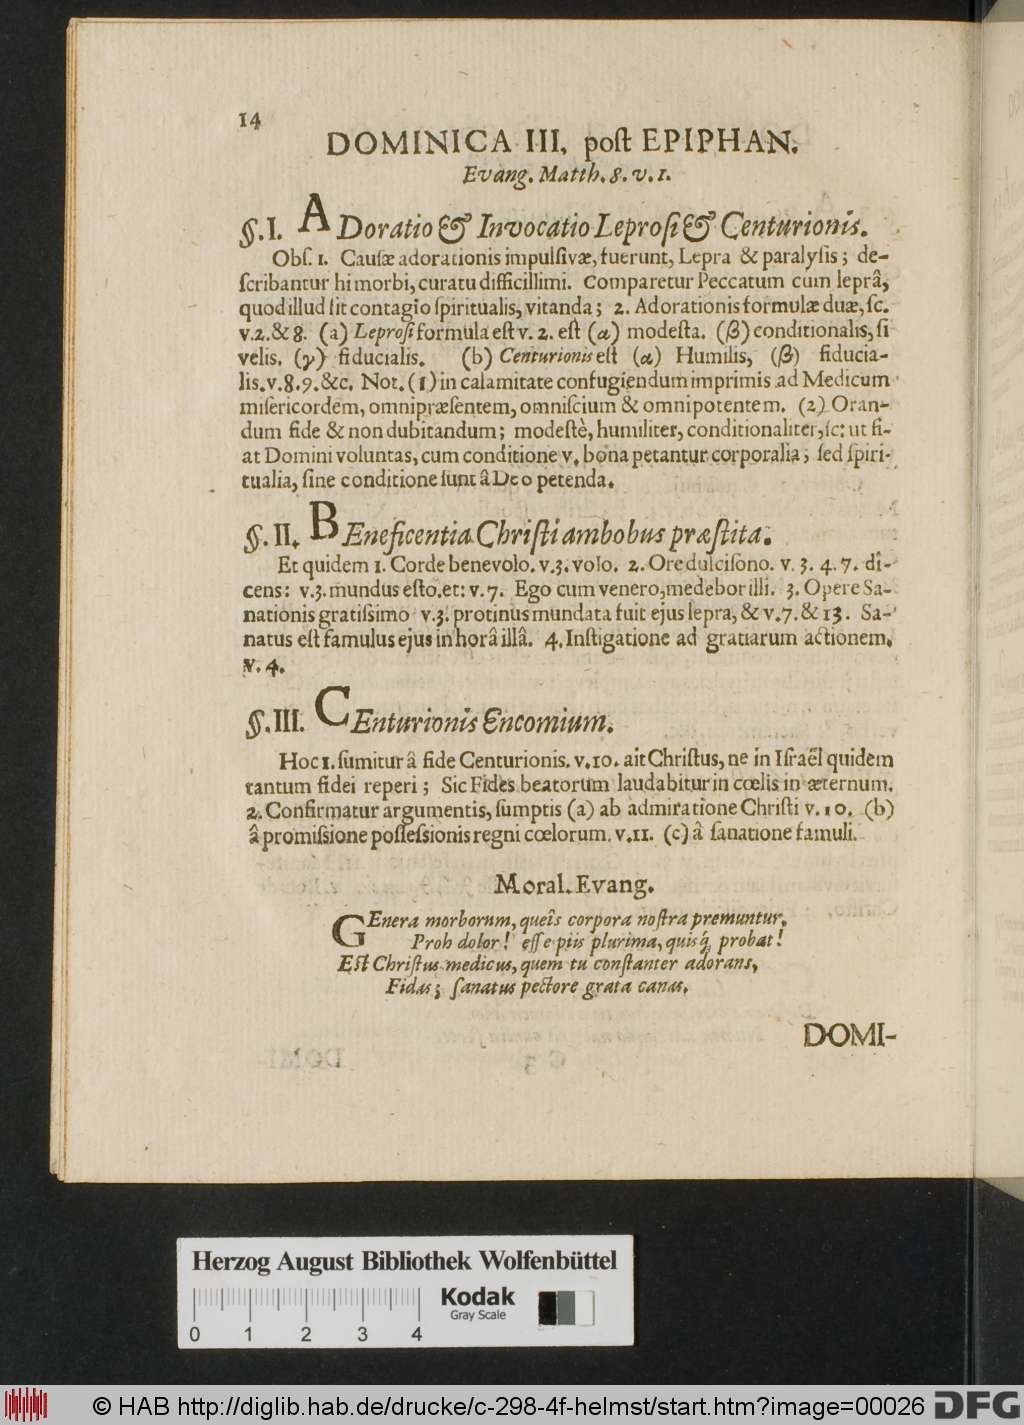 14
DOMINICA III, poſt EPIPHAN.
Evang. Matth. 8. v. 1.
§. I. ADoratio & Invocatio Leproſi & Centurionis.
Obſ. 1. Cauſæ adorationis impulſivæ, fuerunt, Lepra & paralyſis; de-
ſcribantur hi morbi, curatu difficillimi. Comparetur Peccatum cum leprâ,
quod illud ſit contagio ſpiritualis, vitanda; 2. Adorationis formulæ duæ, ſc.
v. 2. & 8. (a) Leproſi formula eſt v. 2. eſt (α) modeſta. (β) conditionalis, ſi
velis. (γ) fiducialis. (b) Centurionis eſt (α) Humilis, (β) fiducia-
lis. v. 8. 9. &c. Not. (1) in calamitate confugiendum imprimis ad Medicum
miſericordem, omnipræſentem, omniſcium & omnipotentem. (2) Oran-
dum fide & non dubitandum; modeſtè, humiliter, conditionaliter, ſc: ut fi-
at Domini voluntas, cum conditione v. bona petantur corporalia; ſed ſpiri-
tualia, ſine conditione ſunt â Deo petenda.
§. II. BEneficentia Chriſti ambobus præſtita.
Et quidem 1. Corde benevolo. v. 3. volo. 2. Ore dulciſono. v. 3. 4. 7. di-
cens: v. 3. mundus eſto. et: v. 7. Ego cum venero, medebor illi. 3. Opere Sa-
nationis gratiſsimo v. 3. protinus mundata fuit ejus lepra, & v. 7. & 13. Sa-
natus eſt famulus ejus in horâ illâ. 4. Inſtigatione ad gratiarum actionem.
v. 4.
§. III. CEnturionis Encomium.
Hoc 1. ſumitur â fide Centurionis. v. 10. ait Chriſtus, ne in Iſraël quidem
tantum fidei reperi; Sic Fides beatorum laudabitur in cœlis in æternum.
2. Confirmatur argumentis, ſumptis (a) ab admiratione Chriſti v. 10. (b)
â promiſsione poſſeſsionis regni cœlorum. v. 11. (c) â ſanatione famuli.
Moral. Evang.
GEnera morborum, queîs corpora noſtra premuntur,
Proh dolor! eſſe piis plurima, quisq́; probat!
Eſt Chriſtus medicus, quem tu conſtanter adorans,
Fidas; ſanatus pectore grata canas.
DOMI-
Herzog August Bibliothek Wolfenbüttel
Kodak
Gray Scale
0 1 2 3 4
© HAB http://diglib.hab.de/drucke/c-298-4f-helmst/start.htm?image=00026
DFG